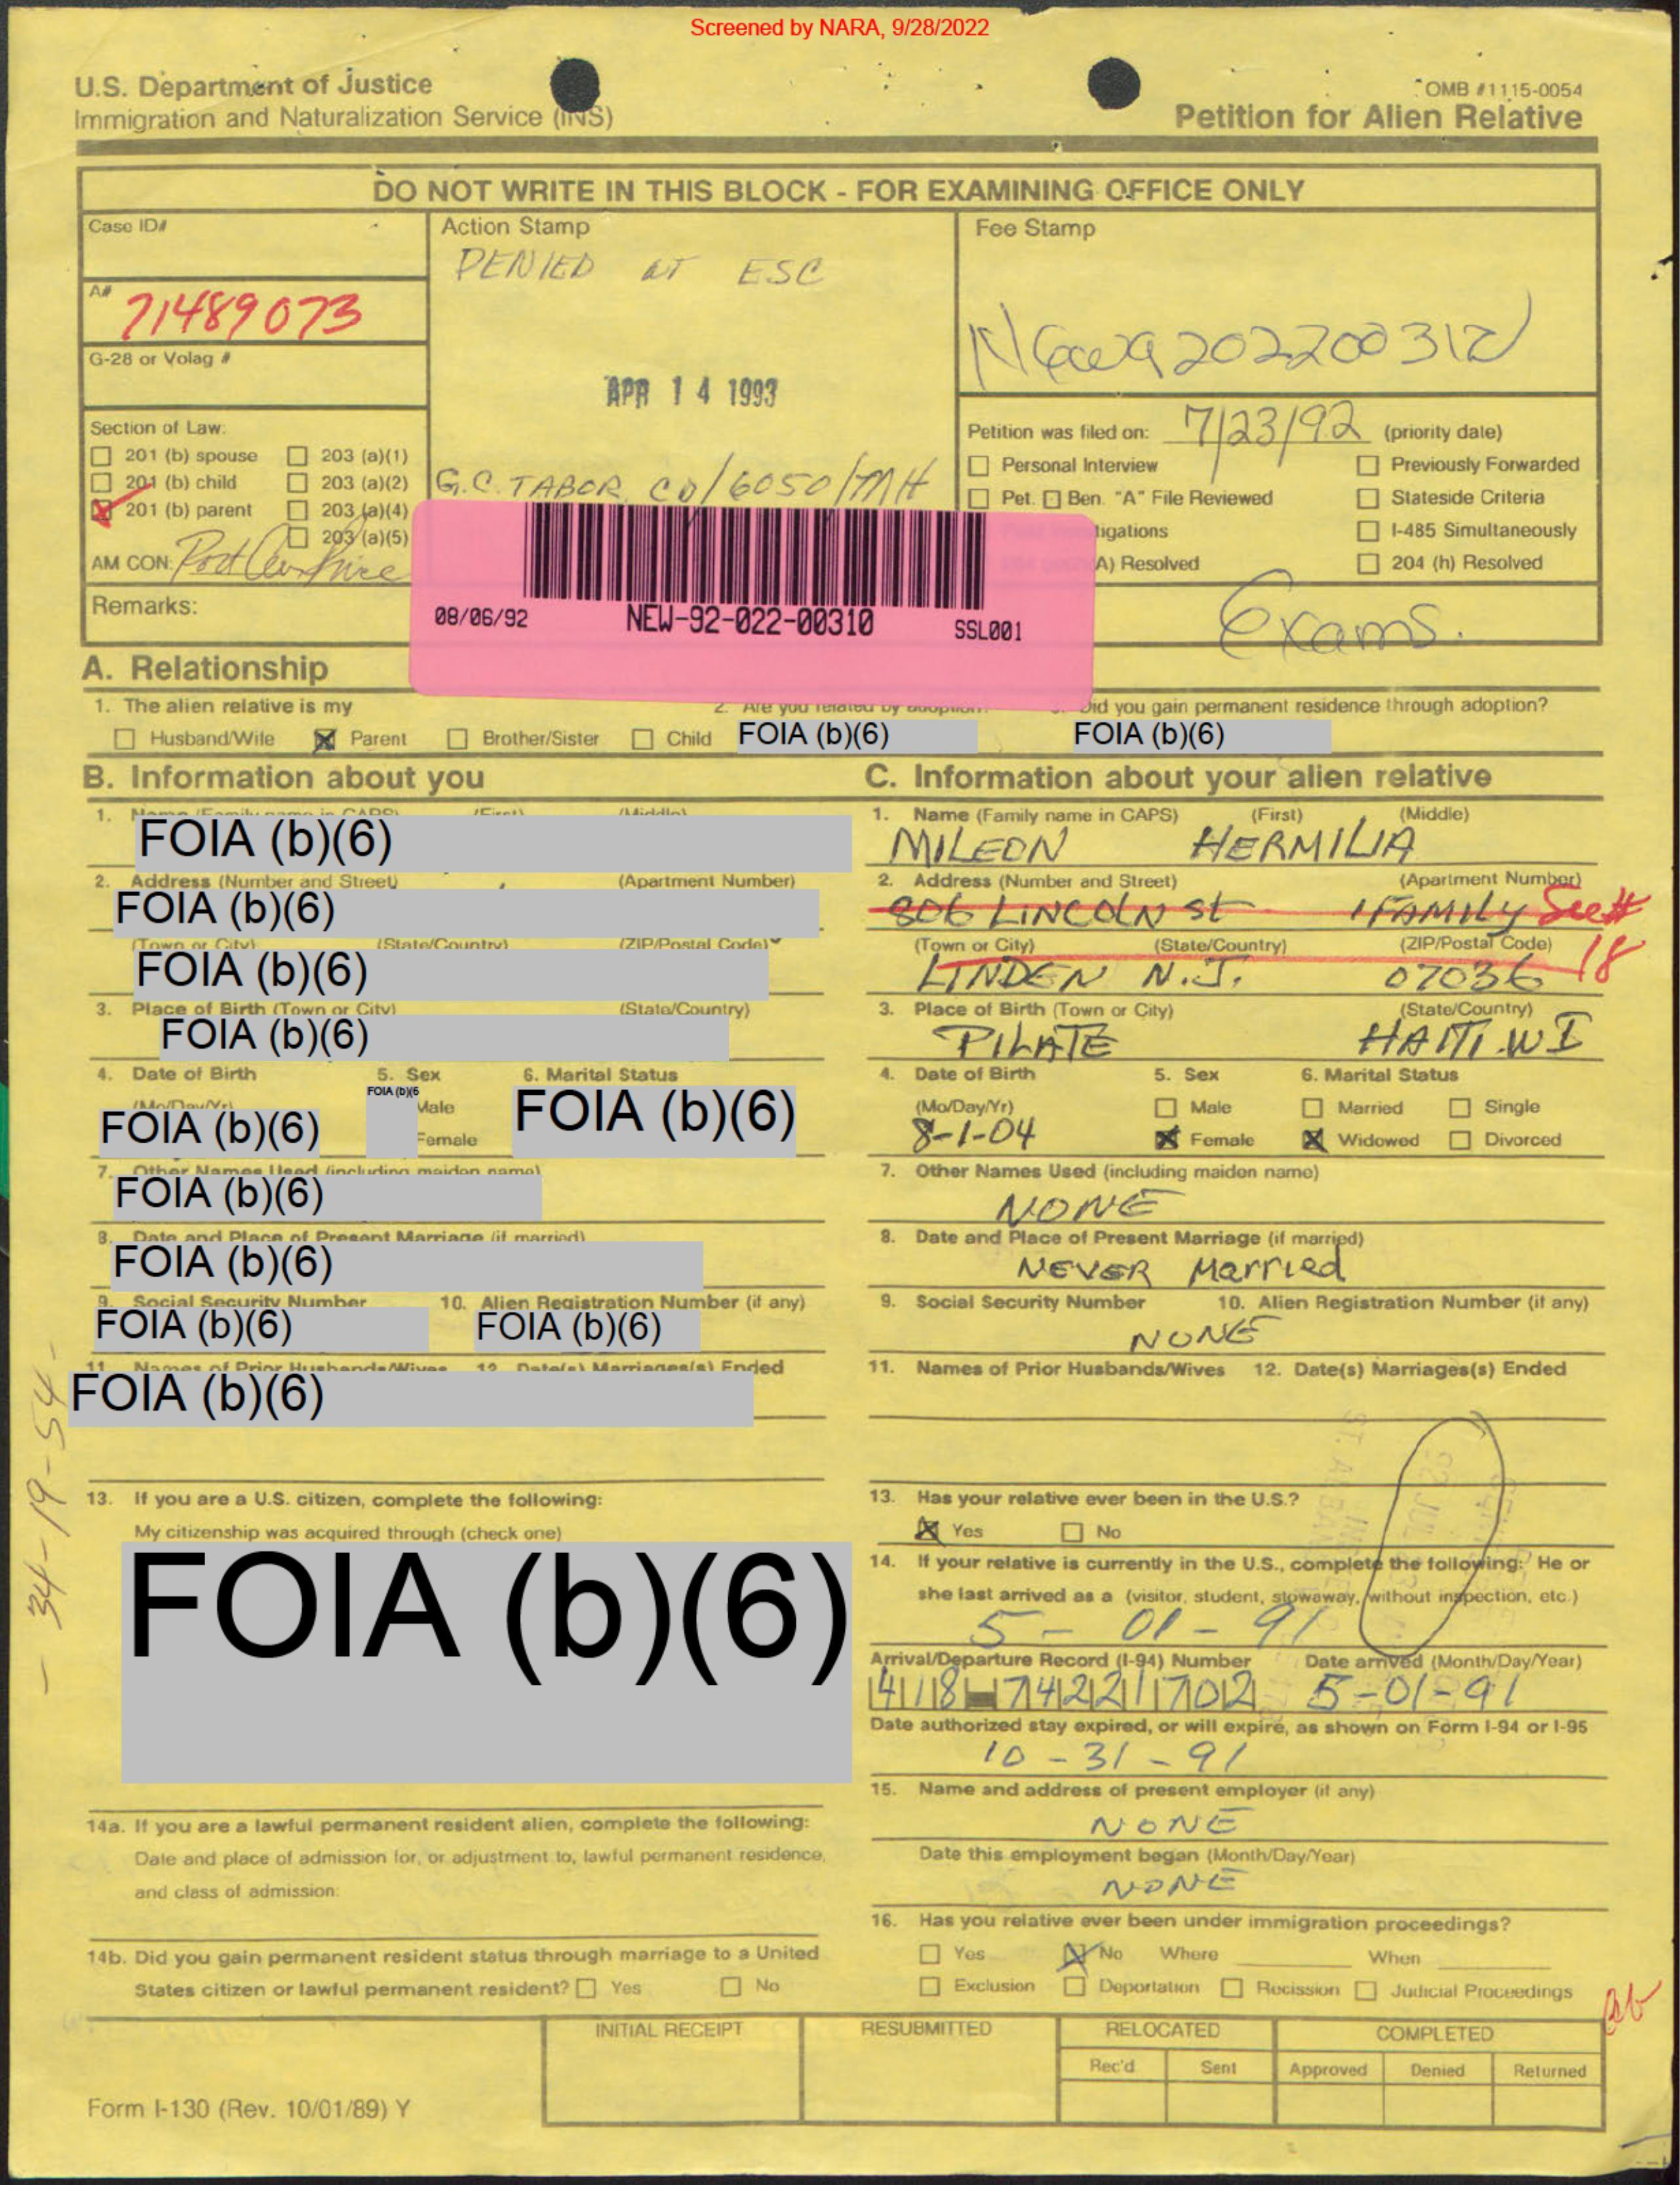 Screened by NARA, 9/28/2022
U.S. Department of Justice
Immigration and Naturalization Service (INS)
OMB #1115-0054
Petition for Alien Relative
DO NOT WRITE IN THIS BLOCK - FOR EXAMINING OFFICE ONLY
Case ID#
Action Stamp
Fee Stamp
DENIED AT ESC
A#
71489073
G-28 or Volag #
APR 14 1993
Section of Law:
201 (b) spouse 203 (a)(1)
201 (b) child 203 (a)(2)
201 (b) parent 203 (a)(4)
203 (a)(5)
AM CON:
Remarks:
G.C. TABOR CO/6050/MH
Petition was filed on: 7/23/92 (priority date)
Personal Interview Previously Forwarded
Pet. Ben. "A" File Reviewed Stateside Criteria
igations I-485 Simultaneously
A) Resolved 204 (h) Resolved
Exams.
08/06/92 NEW-92-022-00310 SSL001
A. Relationship
1. The alien relative is my
2. Are you related by adoption?
Did you gain permanent residence through adoption?
Husband/Wife Parent Brother/Sister Child FOIA (b)(6) FOIA (b)(6)
B. Information about you
1. Name (Family name in CAPS) (First) (Middle)
FOIA (b)(6)
2. Address (Number and Street) (Apartment Number)
FOIA (b)(6)
(Town or City) (State/Country) (ZIP/Postal Code)
FOIA (b)(6)
3. Place of Birth (Town or City) (State/Country)
FOIA (b)(6)
4. Date of Birth 5. Sex 6. Marital Status
(Mo/Day/Yr) FOIA (b)(6 Male
FOIA (b)(6) Female FOIA (b)(6)
7. Other Names Used (including maiden name)
FOIA (b)(6)
8. Date and Place of Present Marriage (if married)
FOIA (b)(6)
9. Social Security Number 10. Alien Registration Number (if any)
FOIA (b)(6) FOIA (b)(6)
11. Names of Prior Husbands/Wives 12. Date(s) Marriages(s) Ended
FOIA (b)(6)
13. If you are a U.S. citizen, complete the following:
My citizenship was acquired through (check one)
FOIA (b)(6)
14a. If you are a lawful permanent resident alien, complete the following:
Date and place of admission for, or adjustment to, lawful permanent residence,
and class of admission:
14b. Did you gain permanent resident status through marriage to a United
States citizen or lawful permanent resident? Yes No
- 34-19-54-
C. Information about your alien relative
1. Name (Family name in CAPS) (First) (Middle)
MILEON HERMILIA
2. Address (Number and Street) (Apartment Number)
806 LINCOLN St 1 FAMILY See #
18
(Town or City) (State/Country) (ZIP/Postal Code)
LINDEN N.J. 07036
3. Place of Birth (Town or City) (State/Country)
PILATE HAITI.WI
4. Date of Birth 5. Sex 6. Marital Status
(Mo/Day/Yr) Male Married Single
8-1-04 Female Widowed Divorced
7. Other Names Used (including maiden name)
NONE
8. Date and Place of Present Marriage (if married)
NEVER Married
9. Social Security Number 10. Alien Registration Number (if any)
NONE
11. Names of Prior Husbands/Wives 12. Date(s) Marriages(s) Ended
13. Has your relative ever been in the U.S.?
Yes No
14. If your relative is currently in the U.S., complete the following: He or
she last arrived as a (visitor, student, stowaway, without inspection, etc.)
5 - 01 - 91
Arrival/Departure Record (I-94) Number Date arrived (Month/Day/Year)
418-74221702 5-01-91
Date authorized stay expired, or will expire, as shown on Form I-94 or I-95
10-31-91
15. Name and address of present employer (if any)
NONE
Date this employment began (Month/Day/Year)
NONE
16. Has you relative ever been under immigration proceedings?
Yes No Where When
Exclusion Deportation Recission Judicial Proceedings
INITIAL RECEIPT RESUBMITTED RELOCATED COMPLETED
Rec'd Sent Approved Denied Returned
Form I-130 (Rev. 10/01/89) Y